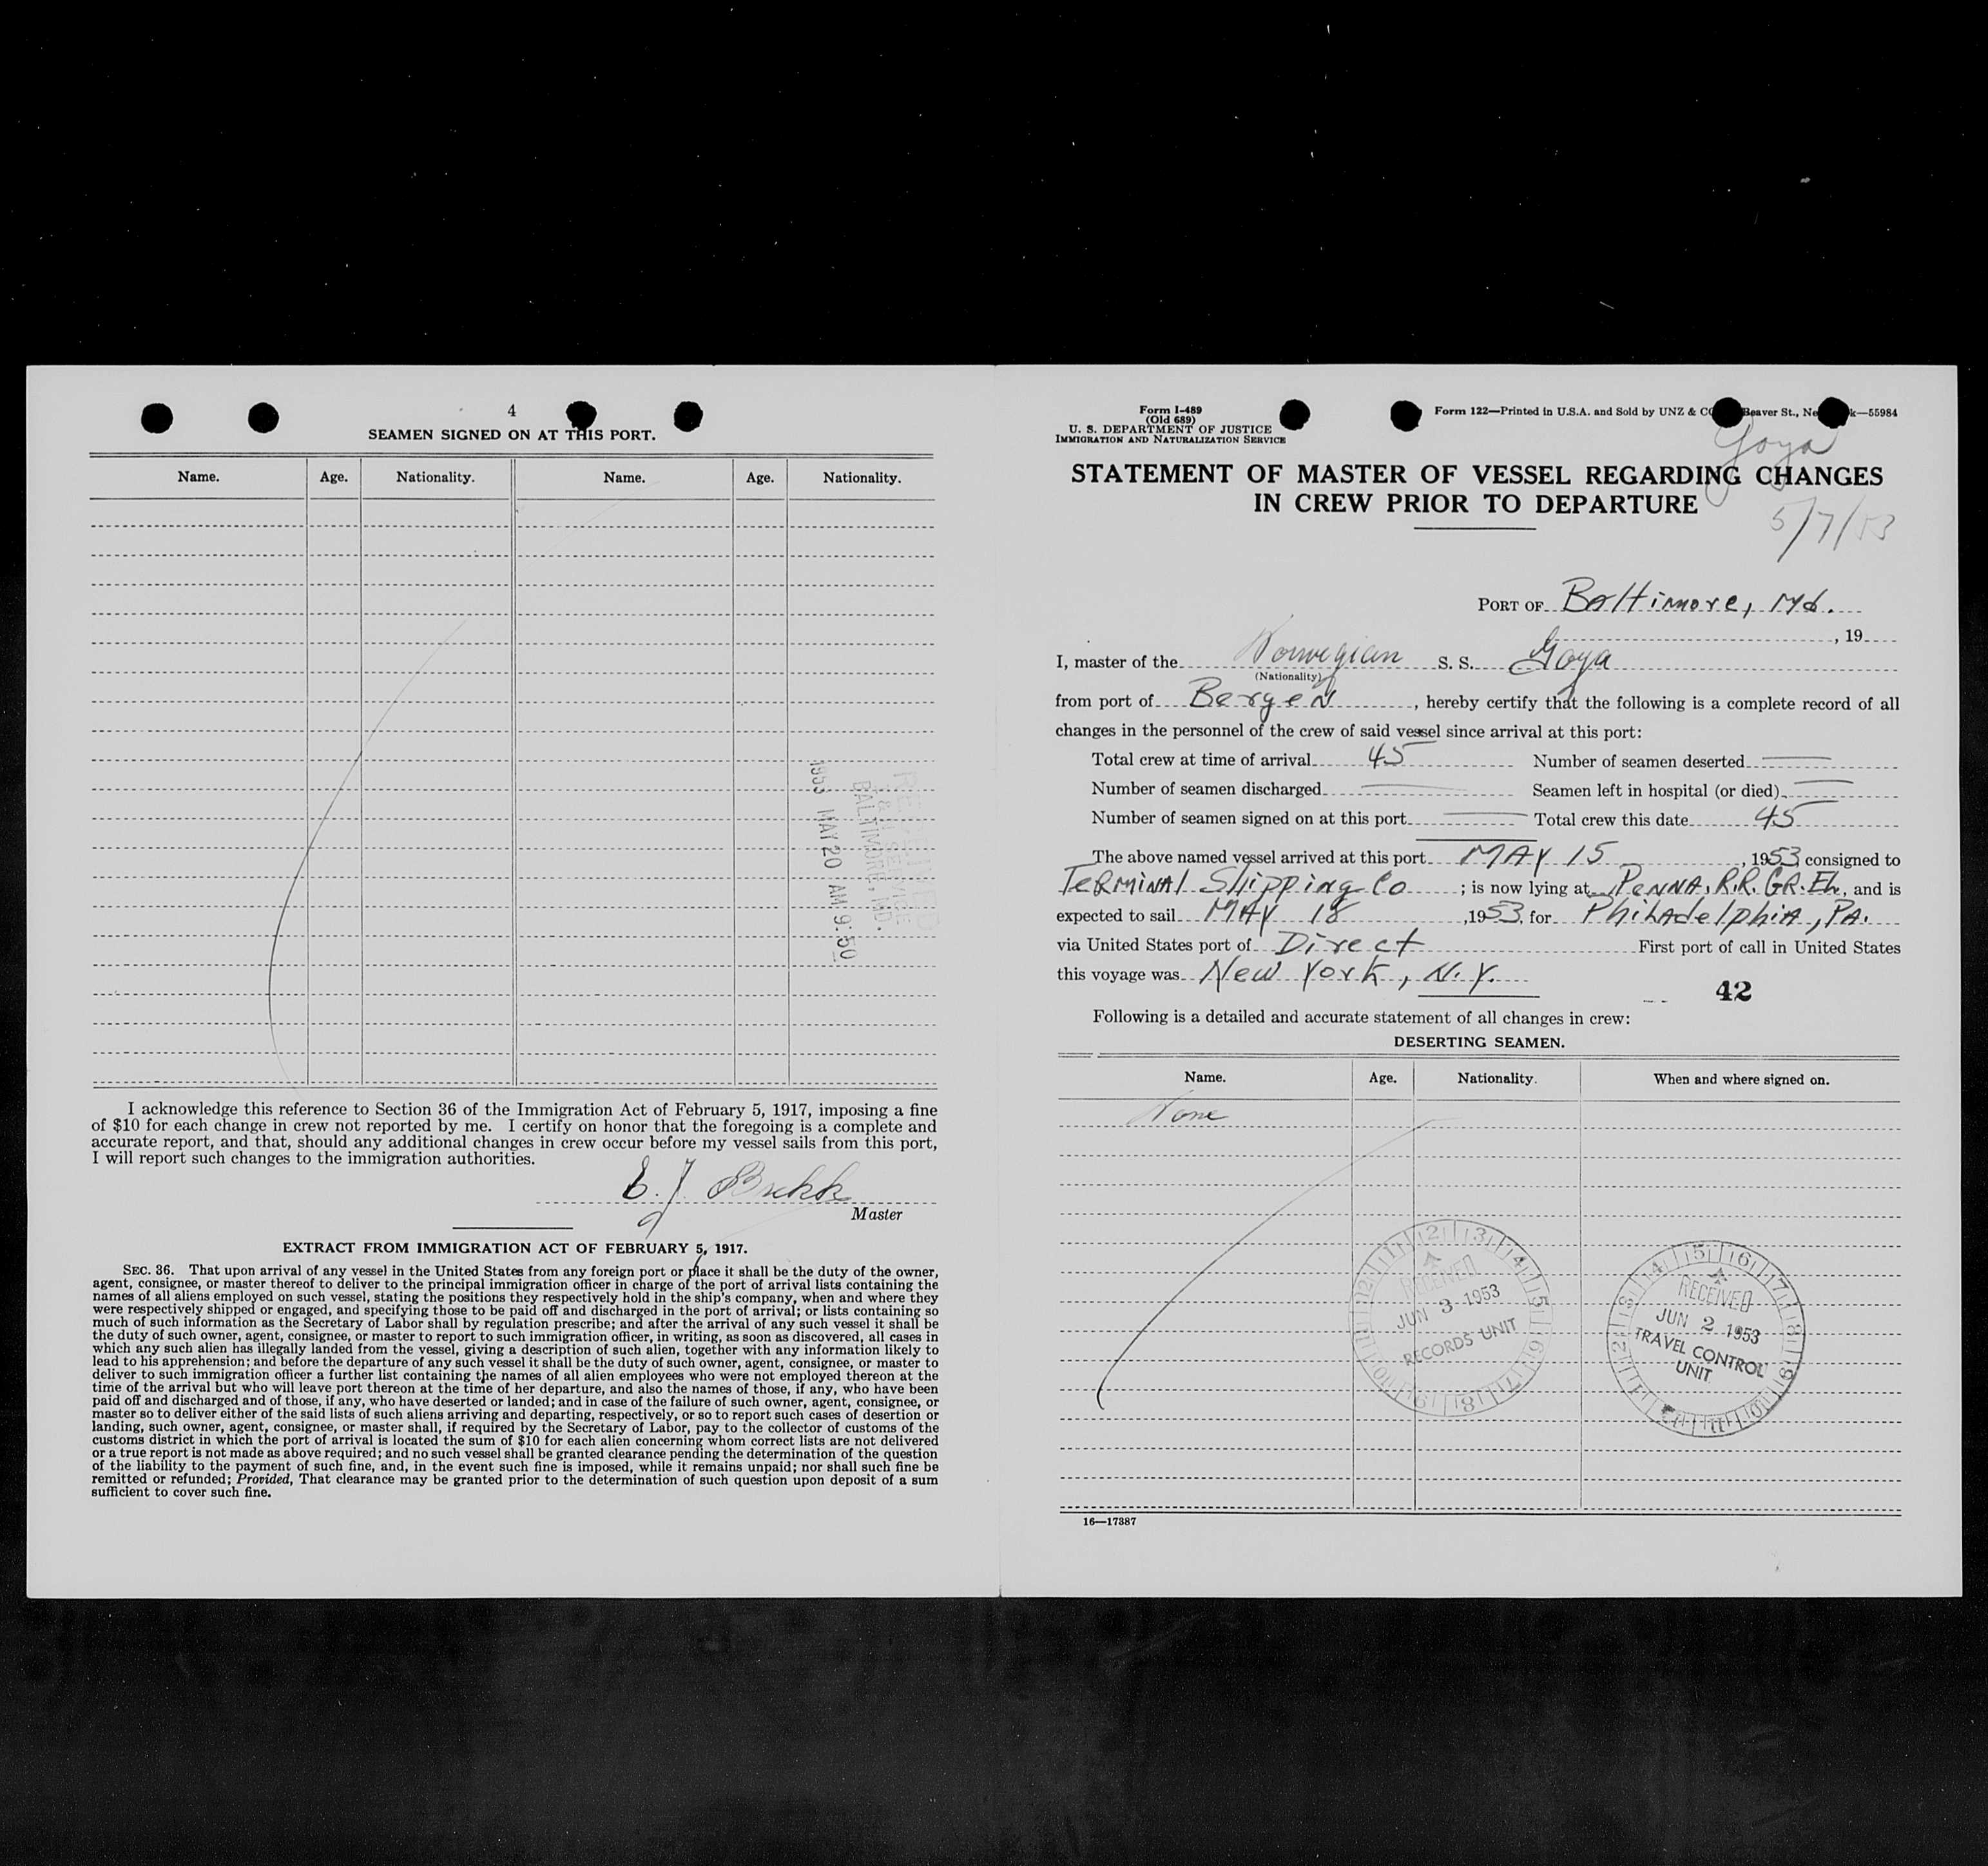 4
SEAMEN SIGNED ON AT THIS PORT.
Name. Age. Nationality. Name. Age. Nationality.
RECEIVED
I & N SERVICE
BALTIMORE, MD.
1953 MAY 20 AM 9:50
I acknowledge this reference to Section 36 of the Immigration Act of February 5, 1917, imposing a fine
of $10 for each change in crew not reported by me. I certify on honor that the foregoing is a complete and
accurate report, and that, should any additional changes in crew occur before my vessel sails from this port,
I will report such changes to the immigration authorities.
Master
EXTRACT FROM IMMIGRATION ACT OF FEBRUARY 5, 1917.
SEC. 36. That upon arrival of any vessel in the United States from any foreign port or place it shall be the duty of the owner,
agent, consignee, or master thereof to deliver to the principal immigration officer in charge of the port of arrival lists containing the
names of all aliens employed on such vessel, stating the positions they respectively hold in the ship's company, when and where they
were respectively shipped or engaged, and specifying those to be paid off and discharged in the port of arrival; or lists containing so
much of such information as the Secretary of Labor shall by regulation prescribe; and after the arrival of any such vessel it shall be
the duty of such owner, agent, consignee, or master to report to such immigration officer, in writing, as soon as discovered, all cases in
which any such alien has illegally landed from the vessel, giving a description of such alien, together with any information likely to
lead to his apprehension; and before the departure of any such vessel it shall be the duty of such owner, agent, consignee, or master to
deliver to such immigration officer a further list containing the names of all alien employees who were not employed thereon at the
time of the arrival but who will leave port thereon at the time of her departure, and also the names of those, if any, who have been
paid off and discharged and of those, if any, who have deserted or landed; and in case of the failure of such owner, agent, consignee, or
master so to deliver either of the said lists of such aliens arriving and departing, respectively, or so to report such cases of desertion or
landing, such owner, agent, consignee, or master shall, if required by the Secretary of Labor, pay to the collector of customs of the
customs district in which the port of arrival is located the sum of $10 for each alien concerning whom correct lists are not delivered
or a true report is not made as above required; and no such vessel shall be granted clearance pending the determination of the question
of the liability to the payment of such fine, and, in the event such fine is imposed, while it remains unpaid; nor shall such fine be
remitted or refunded; Provided, That clearance may be granted prior to the determination of such question upon deposit of a sum
sufficient to cover such fine.
Form I-489
(Old 689)
U. S. DEPARTMENT OF JUSTICE
IMMIGRATION AND NATURALIZATION SERVICE
Form 122—Printed in U.S.A. and Sold by UNZ & Beaver St., —55984
Goya
STATEMENT OF MASTER OF VESSEL REGARDING CHANGES
IN CREW PRIOR TO DEPARTURE
5/7/53
PORT OF Baltimore, Md.
, 19
I, master of the Norwegian S. S. Goya
(Nationality)
from port of Bergen, hereby certify that the following is a complete record of all
changes in the personnel of the crew of said vessel since arrival at this port:
Total crew at time of arrival 45 Number of seamen deserted —
Number of seamen discharged — Seamen left in hospital (or died) —
Number of seamen signed on at this port — Total crew this date 45
The above named vessel arrived at this port MAY 15, 1953 consigned to
Terminal Shipping Co; is now lying at Penna. R.R. GR. El., and is
expected to sail MAY 18, 1953, for Philadelphia, PA.
via United States port of Direct First port of call in United States
this voyage was New York, N.Y.
42
Following is a detailed and accurate statement of all changes in crew:
DESERTING SEAMEN.
Name. Age. Nationality. When and where signed on.
None
RECEIVED
JUN 3 1953
RECORDS UNIT
RECEIVED
JUN 2 1953
TRAVEL CONTROL
UNIT
16—17387